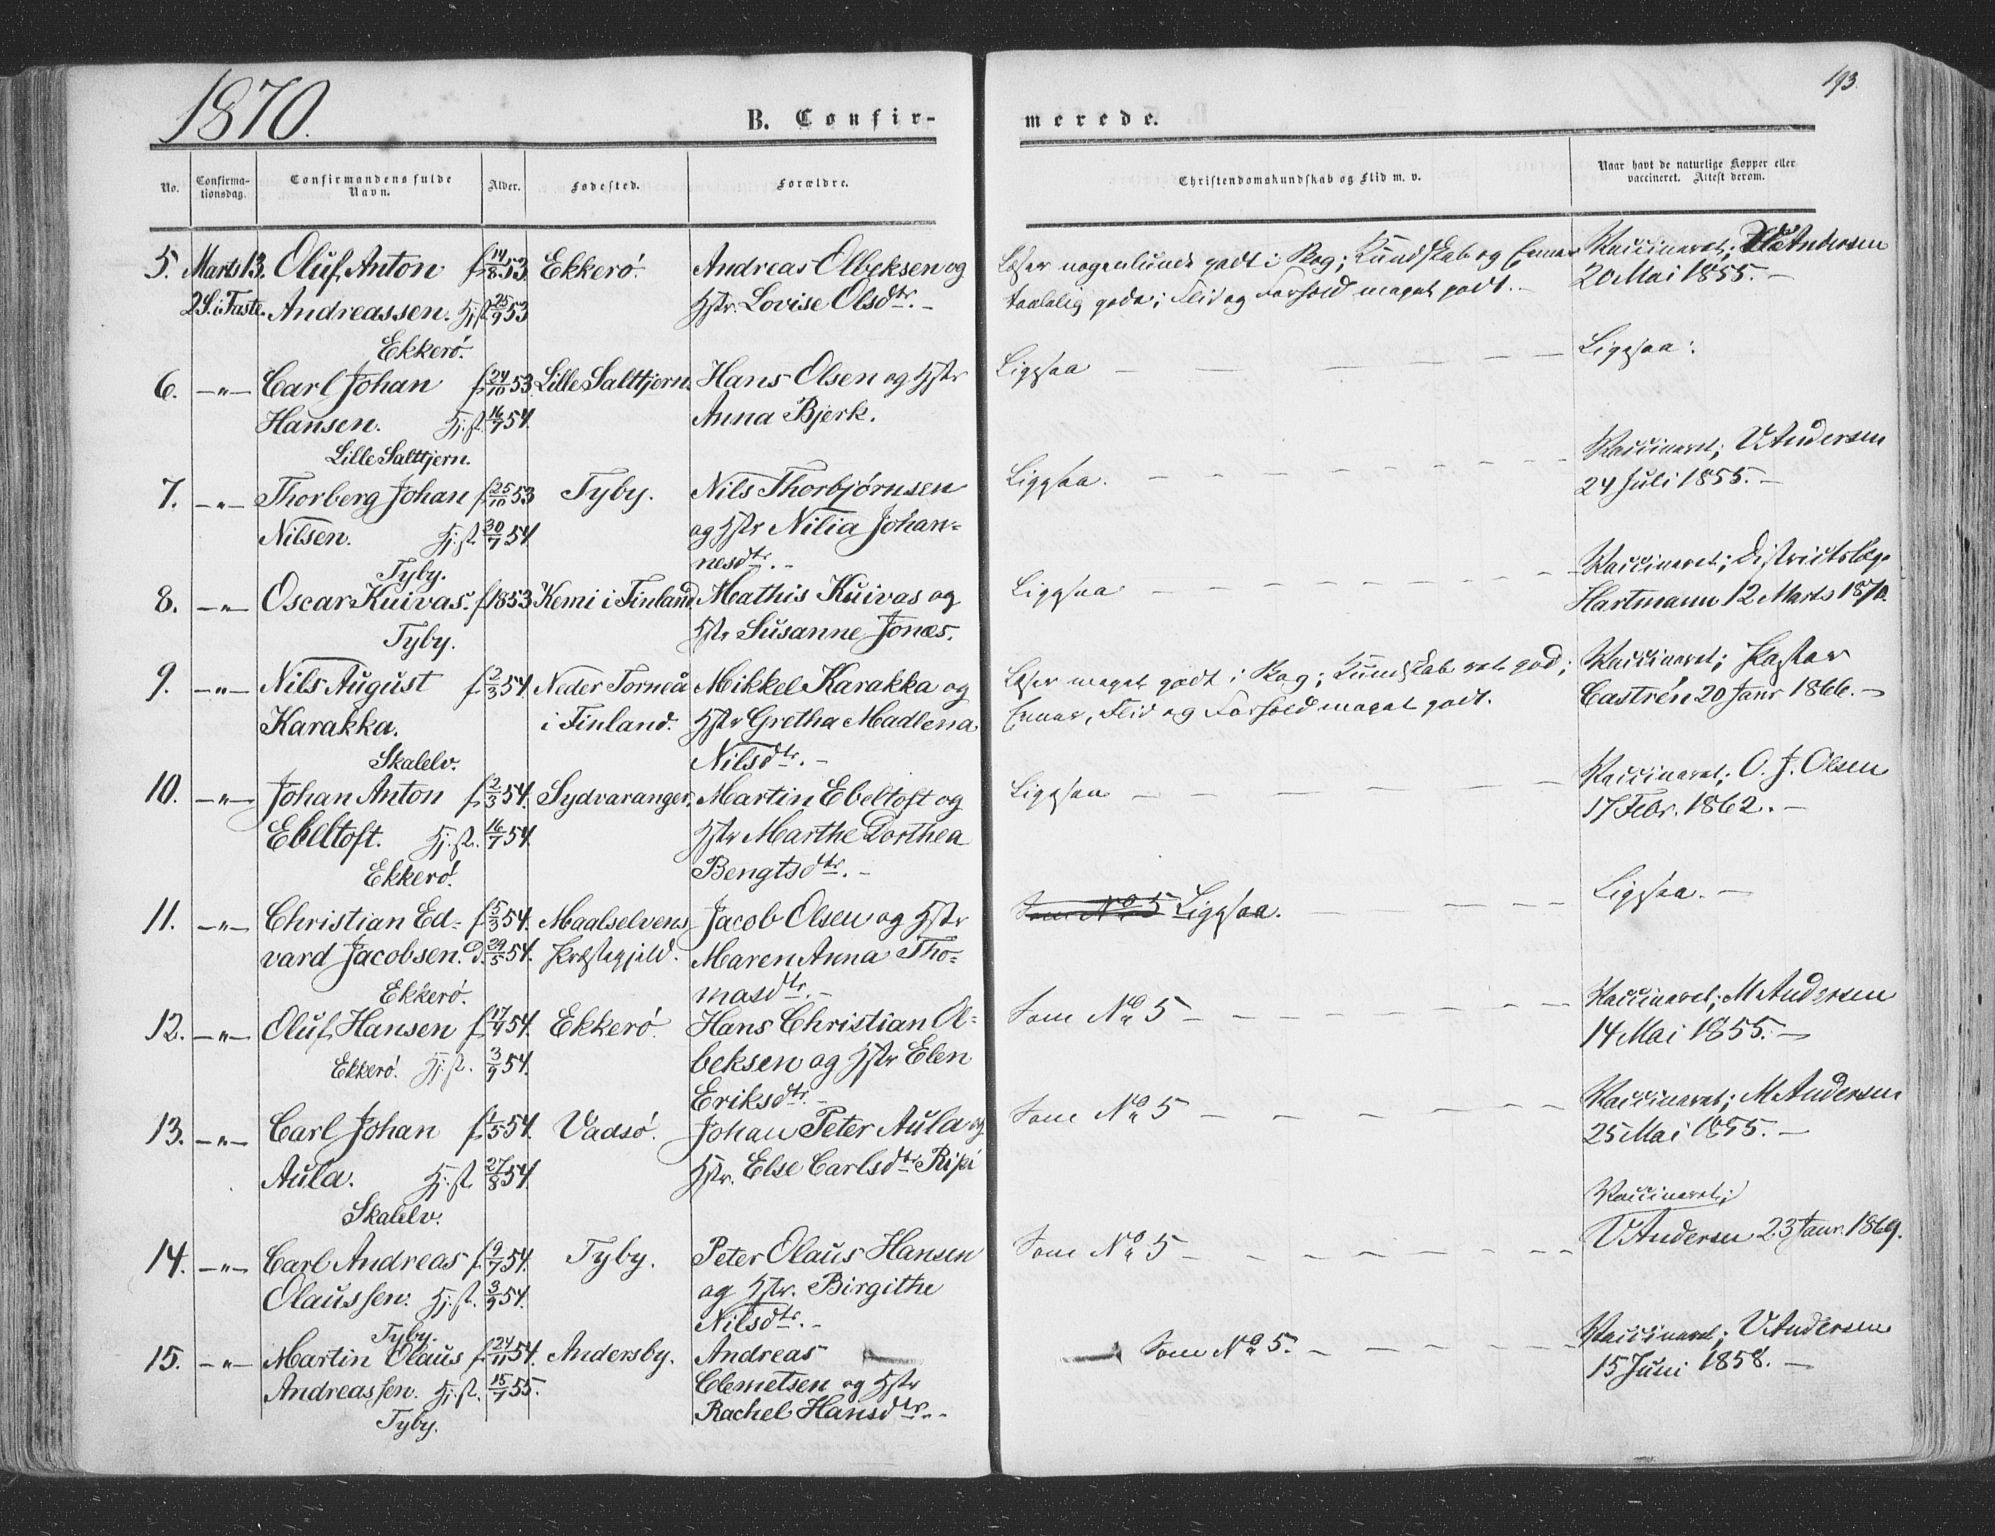 1870.
193.
B. Confir-
merede.
No.
Confirma-
tionsdag.
Confirmandens fulde
Navn.
Alder.
Fødested.
Forældre.
Christendomskundskab og Flid m. v.
Naar havt de naturlige Kopper eller
vaccineret. Attest derom.
5. Marts 13. Oluf Anton f. 14/8 53. Ekkerö. Andreas Olbeksen og
2S. i Faste. Andreassen. Hj.d. 25/9 53 Hstr. Lovise Olsdtr. –
Ekkerö.
Læser nogenlunde godt i Bog; Kundskab og Emner
taalelig gode; Flid og Forhold meget godt. –
Vaccineret; Andersen
20 Mai 1855. –
6. –"– Carl Johan f. 24/10 53. Lille Salttjern. Hans Olsen og Hstr
Hansen. Hj.d. 16/7 54. Anna Bjerk.
Lille Salttjern.
Ligesaa – – – –
Ligesaa.
7. –"– Thorberg Johan f. 25/10 53 Tyby. Nils Thorbjørnsen
Nilsen. Hj.d. 30/7 54. og Hstr Nilia Johan-
Tyby. nesdtr. –
Ligesaa. – – – –
Vaccineret; V Andersen
24 Juli 1855. –
8. –"– Oscar Kuivas. f. 1853 Kemi i Finland Mathis Kuivas og
Tyby. Hstr Susanne Jonæs.
Ligesaa – – – –
Vaccineret; Districtslæge
Hartmann 12 Marts 1870.
9. –"– Nils August f. 2/3 54. Neder Torneå Mikkel Karakka og
Karakka. i Finland. Hstr Gretha Madlena
Skalelv. Nilsdtr. –
Læser meget godt i Bog; Kundskab ret god;
Emner, Flid og Forhold meget godt.
Vaccineret; Pastor
Castrén 20 Janr 1866. –
10. –"– Johan Anton f. 2/3 54. Sydvaranger. Martin Ebeltoft og
Ebeltoft. Hj.d. 16/7 54. Hstr Marthe Dorthea
Ekkerö. Bengtsdtr. –
Ligesaa – – – –
Vaccineret; O. J. Olsen
17 Febr. 1862. –
11. –"– Christian Ed- f. 5/3 54. Maalselvens Jacob Olsen og Hstr
vard Jacobsen. d. 29/5 54. Præstegjeld. Maren Anna Tho-
Ekkerö. masdtr. –
Som No 5 Ligesaa. – – –
Ligesaa. –
12. –"– Oluf Hansen f. 17/4 54. Ekkerö. Hans Christian Ol-
Ekkerö. Hj.d. 3/9 54. beksen og Hstr Elen
Eriksdtr. –
Som No 5 – – – –
Vaccineret; M Andersen
14 Mai 1855. –
13. –"– Carl Johan f. 1/5 54. Vadsö. Johan Peter Aula og
Aula. Hj.d. 27/8 54. Hstr. Else Carlsdtr Ripi
Skalelv.
Som No 5 – – – –
Vaccineret; M Andersen
25 Mai 1855. –
14. –"– Carl Andreas f. 9/7 54. Tyby. Peter Olaus Hansen
Olaussen. Hj.d. 3/9 54. og Hstr. Birgithe
Tyby. Nilsdtr. –
Som No 5 – – – –
Vaccineret;
V Andersen 23 Janr. 1869.
15. –"– Martin Olaus f. 24/11 54. Andersby. Andreas
Andreassen. Hj.d. 15/7 55. Clemetsen og Hstr
Tyby. Rachel Hansdtr. –
Som No 5. – – – –
Vaccineret; V Andersen
15 Juni 1858. –